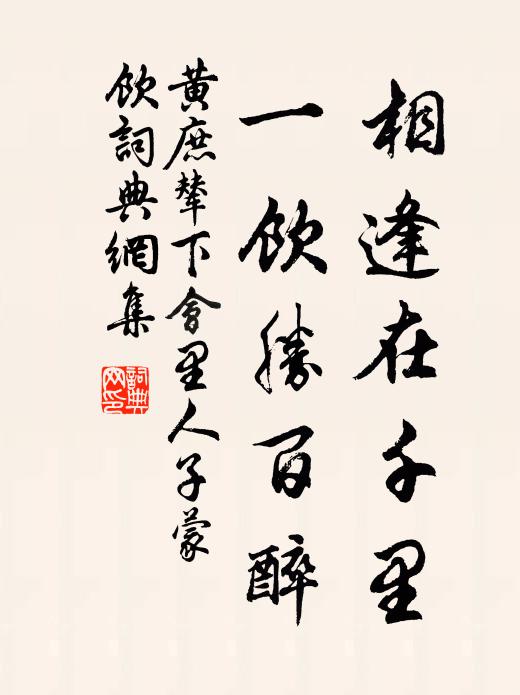 相逢在千里
一飲勝百醉
黃庶輦下會里人子蒙
飲詞典網集
詞典
网印